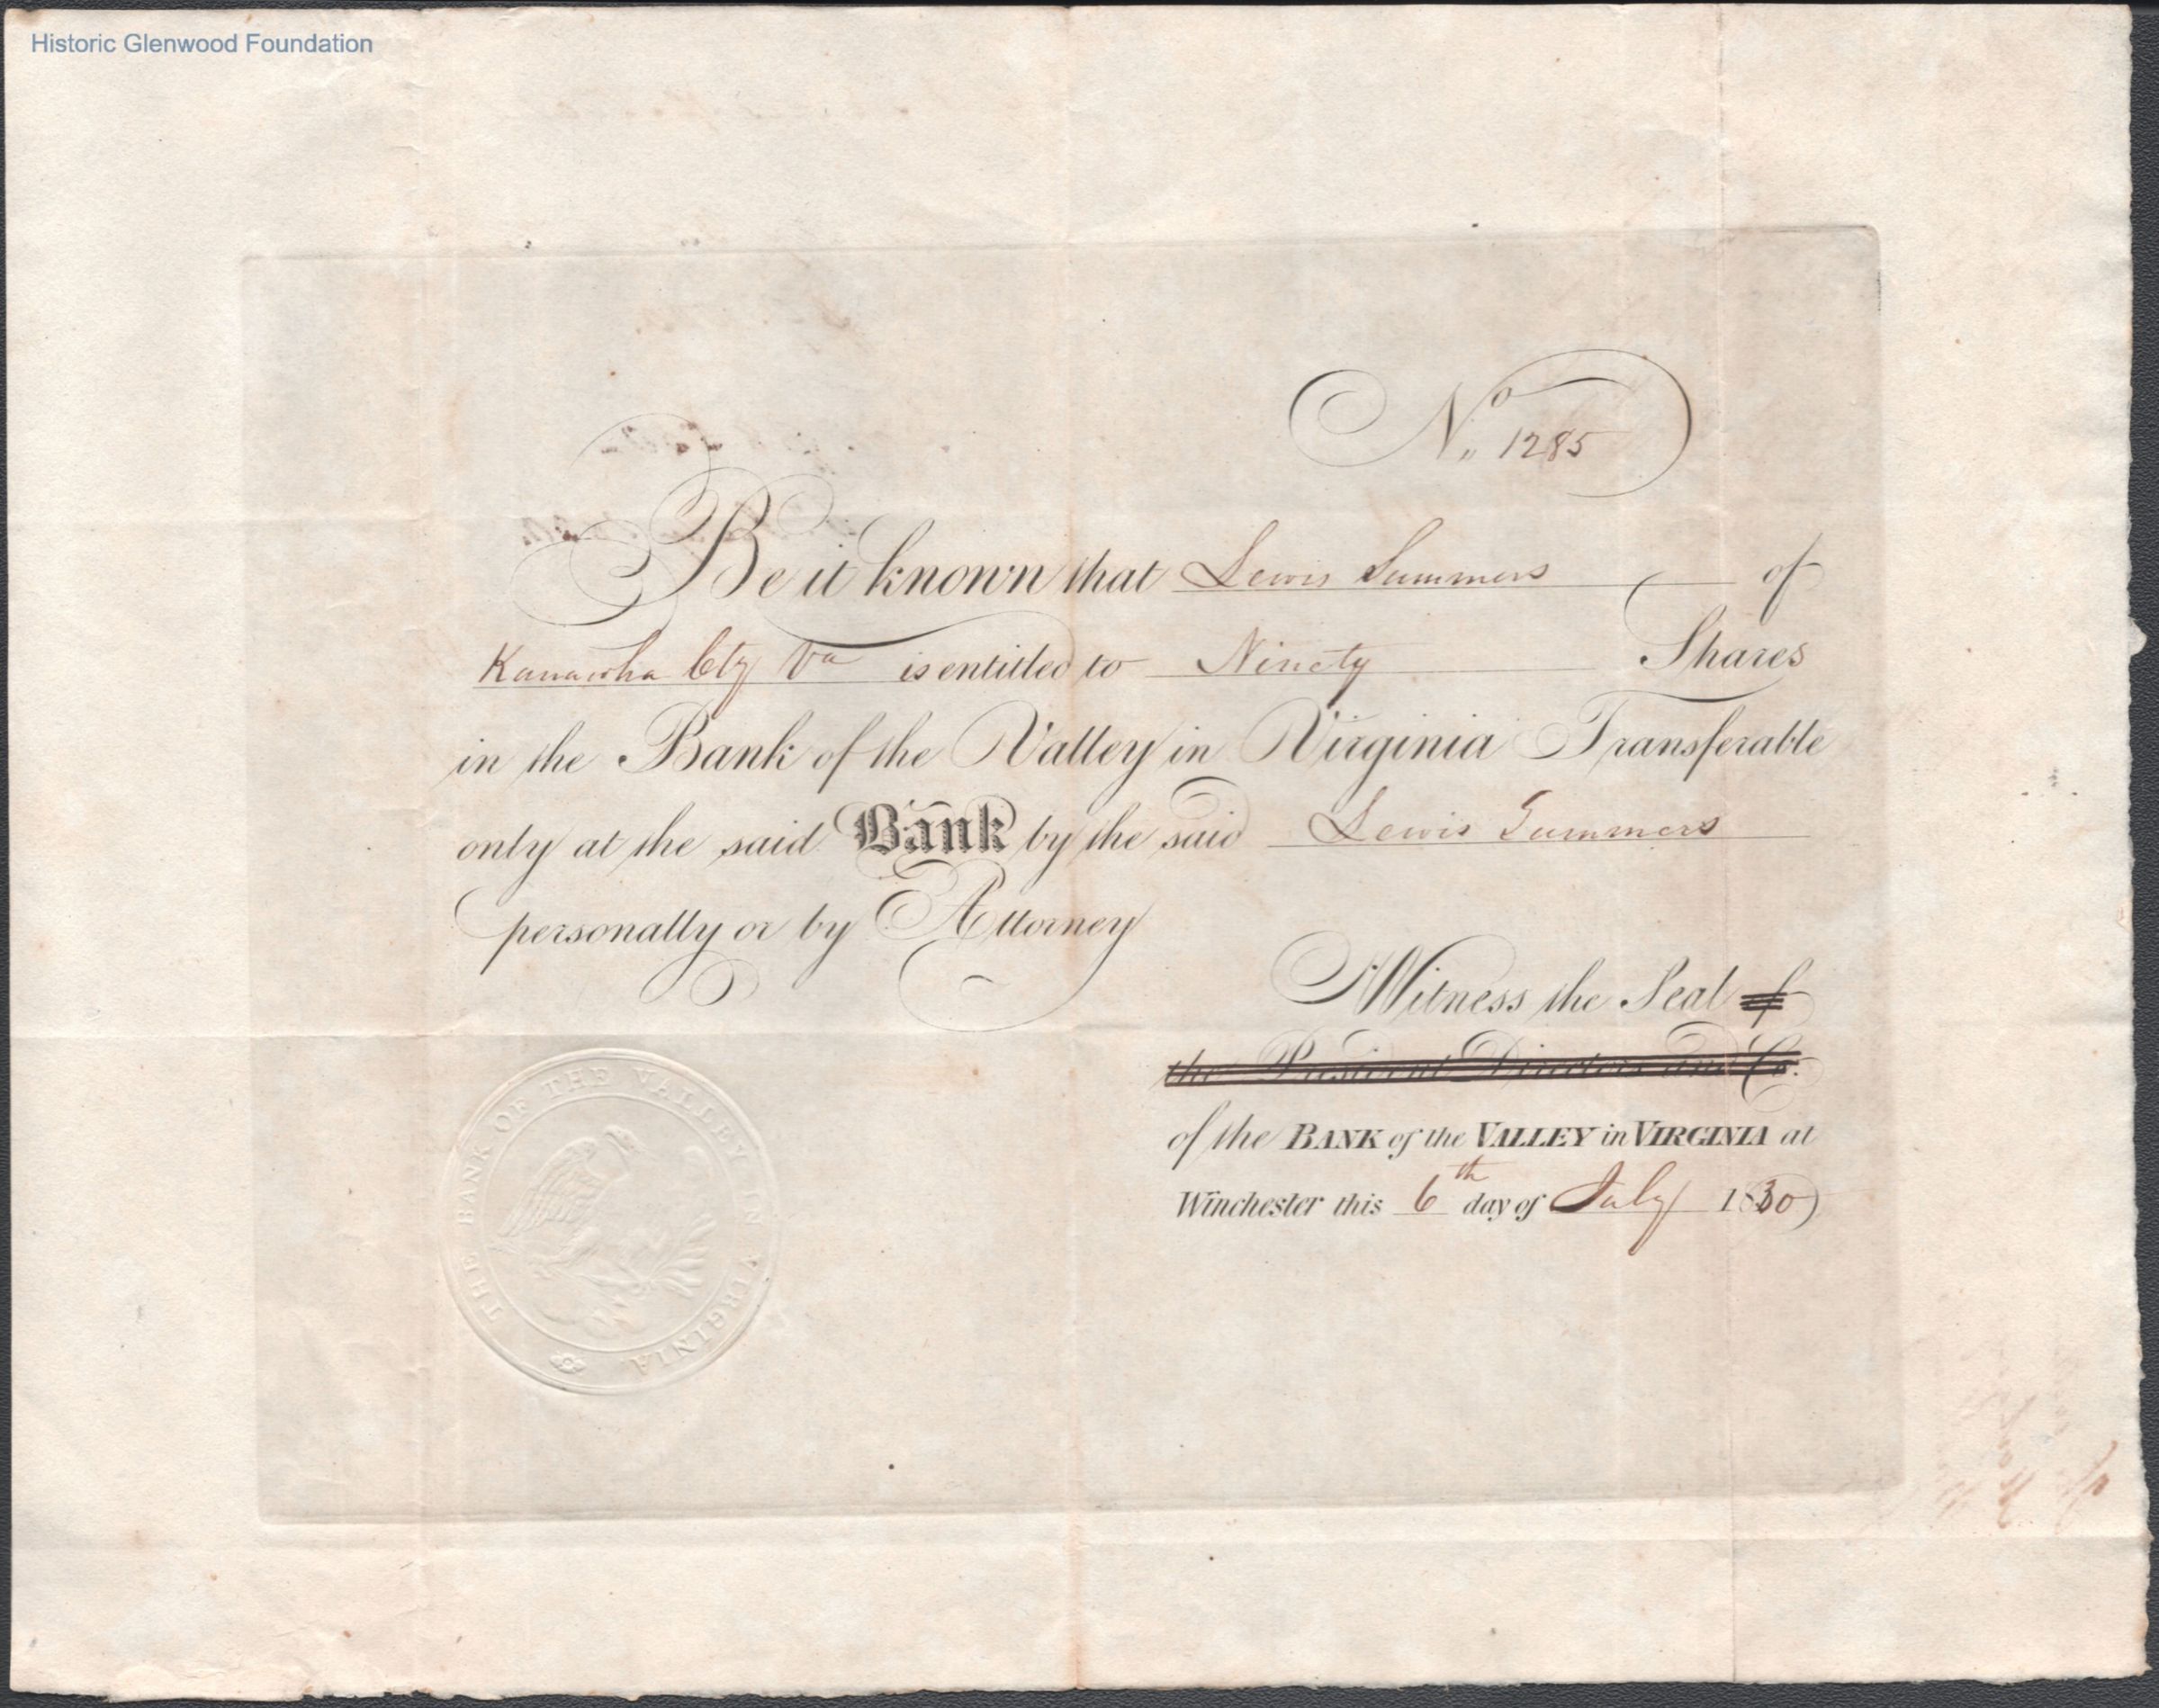 Historic Glenwood Foundation
No. 1285
Be it known that Lewis Summers of
Kanawha Cty Va is entitled to Ninety Shares
in the Bank of the Valley in Virginia Transferable
only at the said Bank by the said Lewis Summers
personally or by Attorney
Witness the Seal of
the President Directors and Co.
of the BANK of the VALLEY in VIRGINIA at
Winchester this 6th day of July 1830
THE BANK OF THE VALLEY IN VIRGINIA